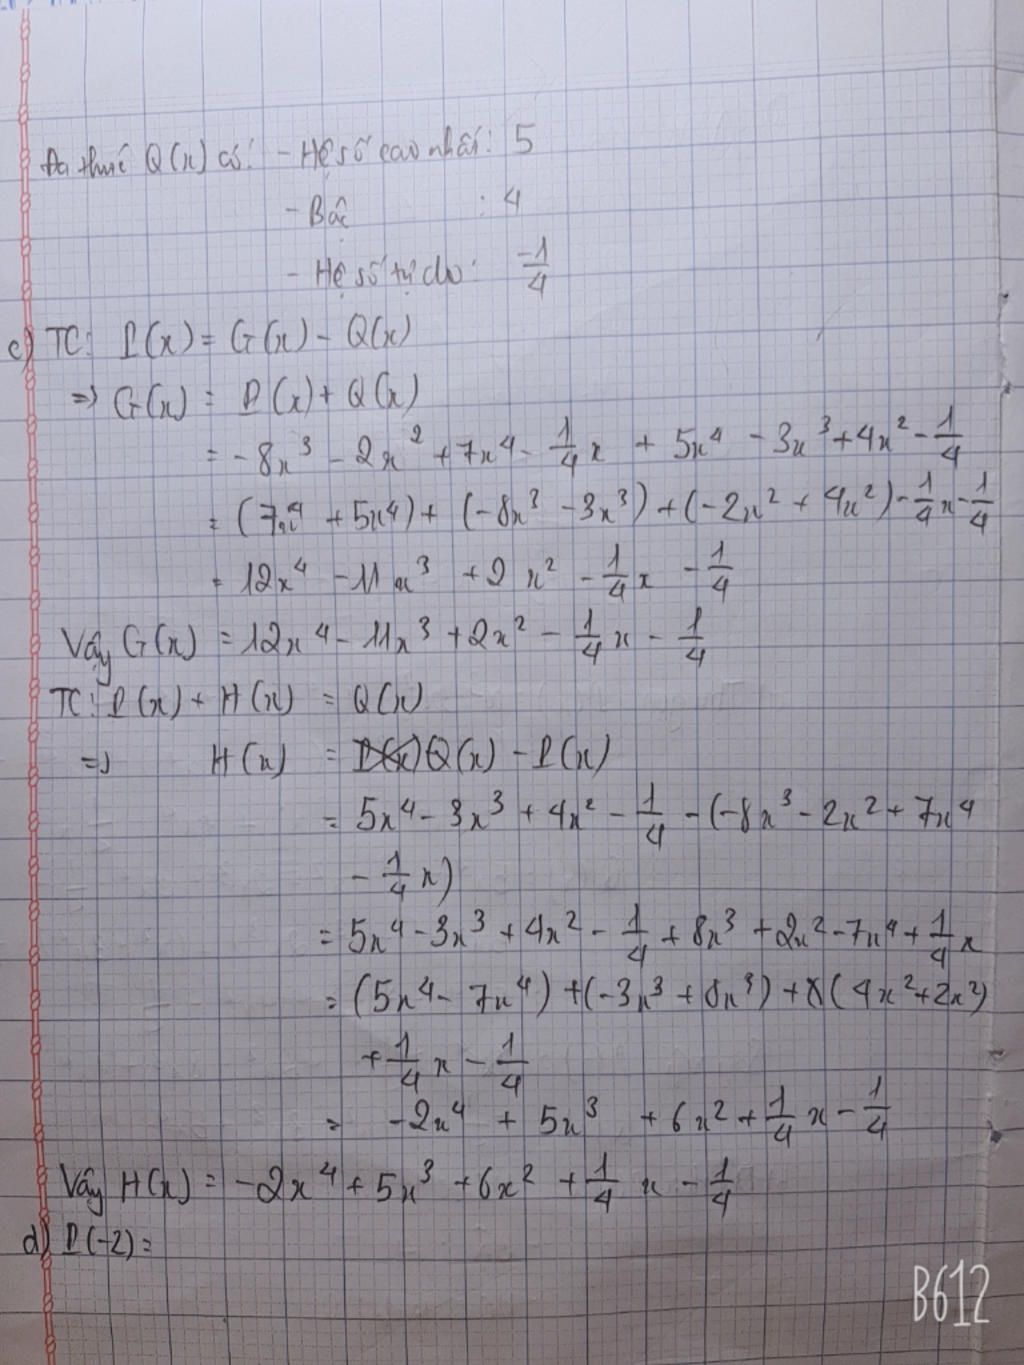 Đa thức Q(x) có: - Hệ số cao nhất: 5
- Bậc : 4
- Hệ số tự do: -1/4
c) TC: P(x) = G(x) - Q(x)
=> G(x) = P(x) + Q(x)
= -8x³ - 2x² + 7x⁴ - 1/4 x + 5x⁴ - 3x³ + 4x² - 1/4
= (7x⁴ + 5x⁴) + (-8x³ - 3x³) + (-2x² + 4x²) - 1/4 x - 1/4
= 12x⁴ - 11x³ + 2x² - 1/4 x - 1/4
Vậy G(x) = 12x⁴ - 11x³ + 2x² - 1/4 x - 1/4
TC: P(x) + H(x) = Q(x)
=> H(x) = Q(x) - P(x)
= 5x⁴ - 3x³ + 4x² - 1/4 - (-8x³ - 2x² + 7x⁴
- 1/4 x)
= 5x⁴ - 3x³ + 4x² - 1/4 + 8x³ + 2x² - 7x⁴ + 1/4 x
= (5x⁴ - 7x⁴) + (-3x³ + 8x³) + (4x² + 2x²)
+ 1/4 x - 1/4
= -2x⁴ + 5x³ + 6x² + 1/4 x - 1/4
Vậy H(x) = -2x⁴ + 5x³ + 6x² + 1/4 x - 1/4
d) P(-2) =
B612